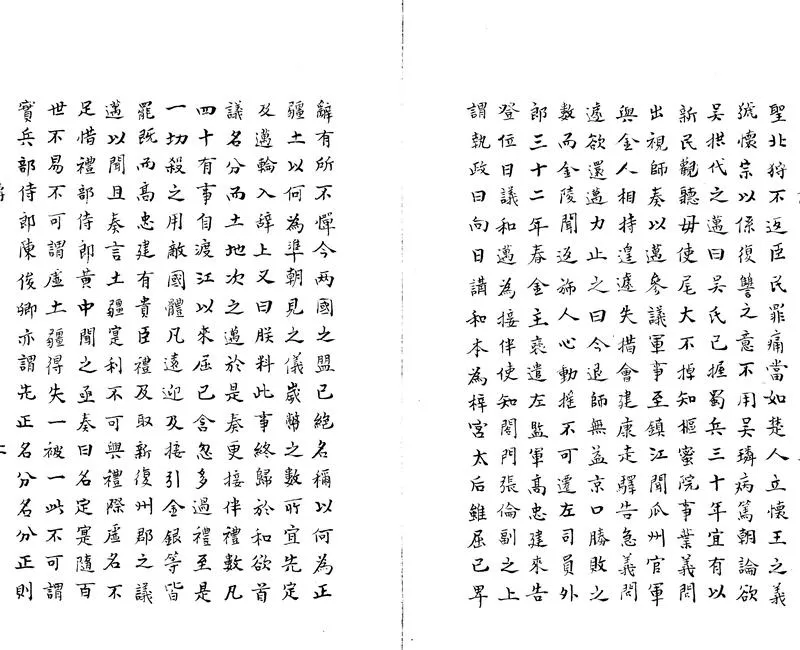 聖北狩不返臣民罪痛當如楚人立懷王之義
號懷宗以係復讐之意不用吳璘病篤朝論欲
吳拱代之邁曰吳氏已握蜀兵三十年宜有以
新民觀聽毋使尾大不掉知樞蜜院事葉義問
出視師奏以邁參議軍事至鎮江聞瓜州官軍
與金人相持遑遽失措會建康走驛告急義問
遽欲還邁力止之曰今退師無益京口勝敗之
數而金陵聞返斾人心動搖不可遷左司員外
郎三十二年春金主褎遣左監軍高忠建來告
登位且議和邁為接伴使知閤門張倫副之上
謂執政曰向日講和本為梓宮太后雖屈已卑
辭有所不憚今兩國之盟已絕名稱以何為正
疆土以何為準朝見之儀歲幣之數所宜先定
及邁輪入辭上又曰朕料此事終歸於和欲首
議名分而土地次之邁於是奏更接伴禮數凡
四十有事自渡江以來屈已含忽多過禮至是
一切殺之用敵國體凡遠迎及接引金銀等皆
罷既而高忠建有貴臣禮及取新復州郡之議
邁以聞且奏言土疆寔利不可與禮際虛名不
足惜禮部侍郎黃中聞之亟奏曰名定寔隨百
世不易不可謂虛土疆得失一被一此不可謂
實兵部侍郎陳俊卿亦謂先正名分名分正則